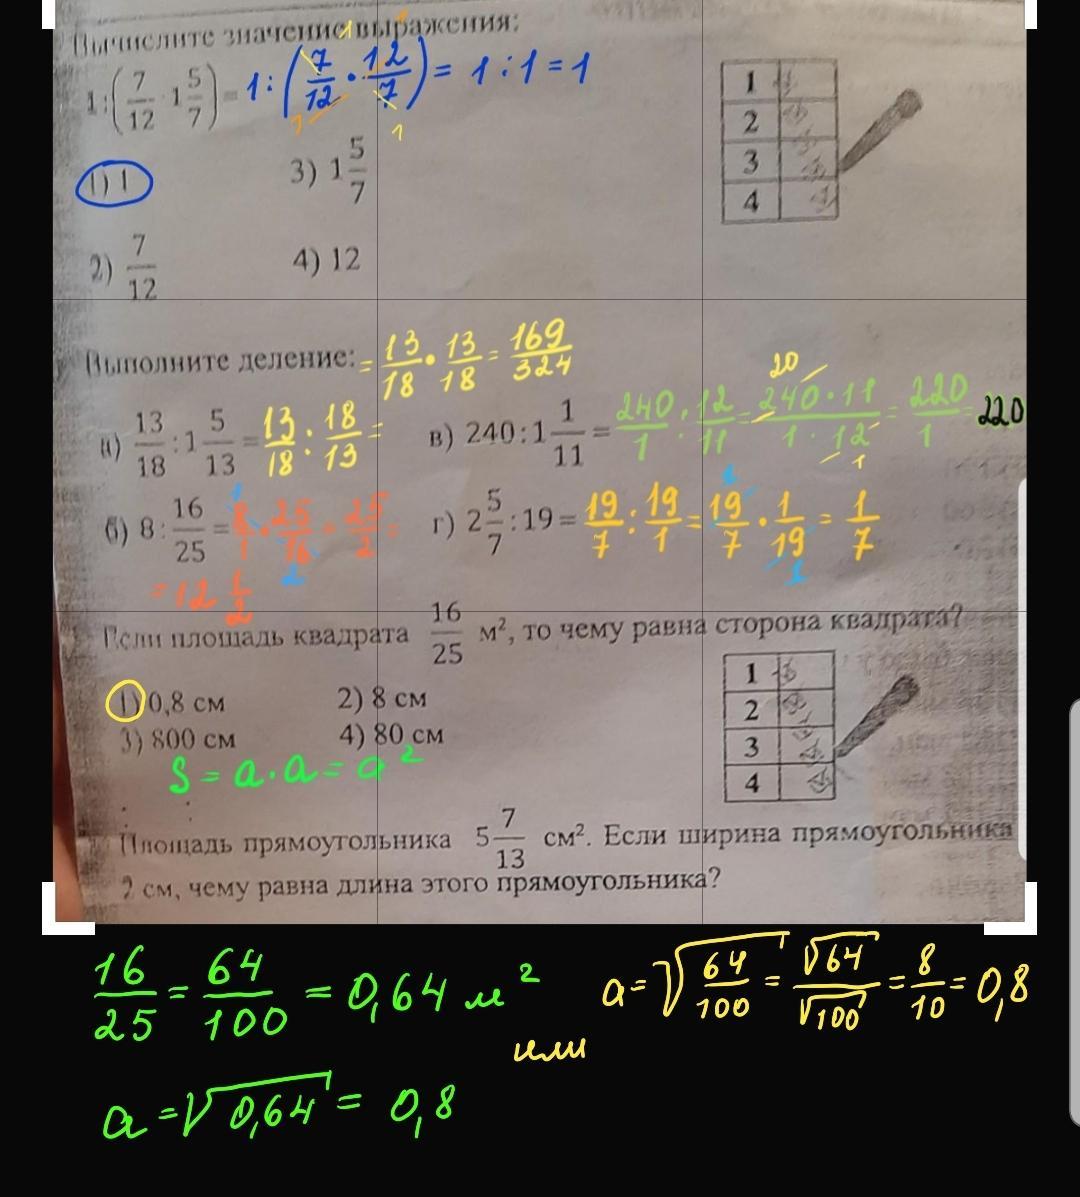 Вычислите значение выражения:
1:(7/12 · 1 5/7) = 1:(7/12 · 12/7) = 1:1=1
1) 1 3) 1 5/7
2) 7/12 4) 12
1
2
3
4
Выполните деление: = 13/18 · 13/18 = 169/324
а) 13/18 : 1 5/13 = 13/18 : 18/13 =
в) 240 : 1 1/11 = 240/1 : 12/11 = 240·11/1·12 = 220/1 = 220
20
1
б) 8 : 16/25 = 8/1 · 25/16 = 25/2 =
= 12 1/2
г) 2 5/7 : 19 = 19/7 : 19/1 = 19/7 · 1/19 = 1/7
Если площадь квадрата 16/25 м², то чему равна сторона квадрата?
1) 0,8 см 2) 8 см
3) 800 см 4) 80 см
1
2
3
4
S = a·a = a²
Площадь прямоугольника 5 7/13 см². Если ширина прямоугольника
2 см, чему равна длина этого прямоугольника?
16/25 = 64/100 = 0,64 м²
a = √64/100 = √64/√100 = 8/10 = 0,8
или
a = √0,64 = 0,8